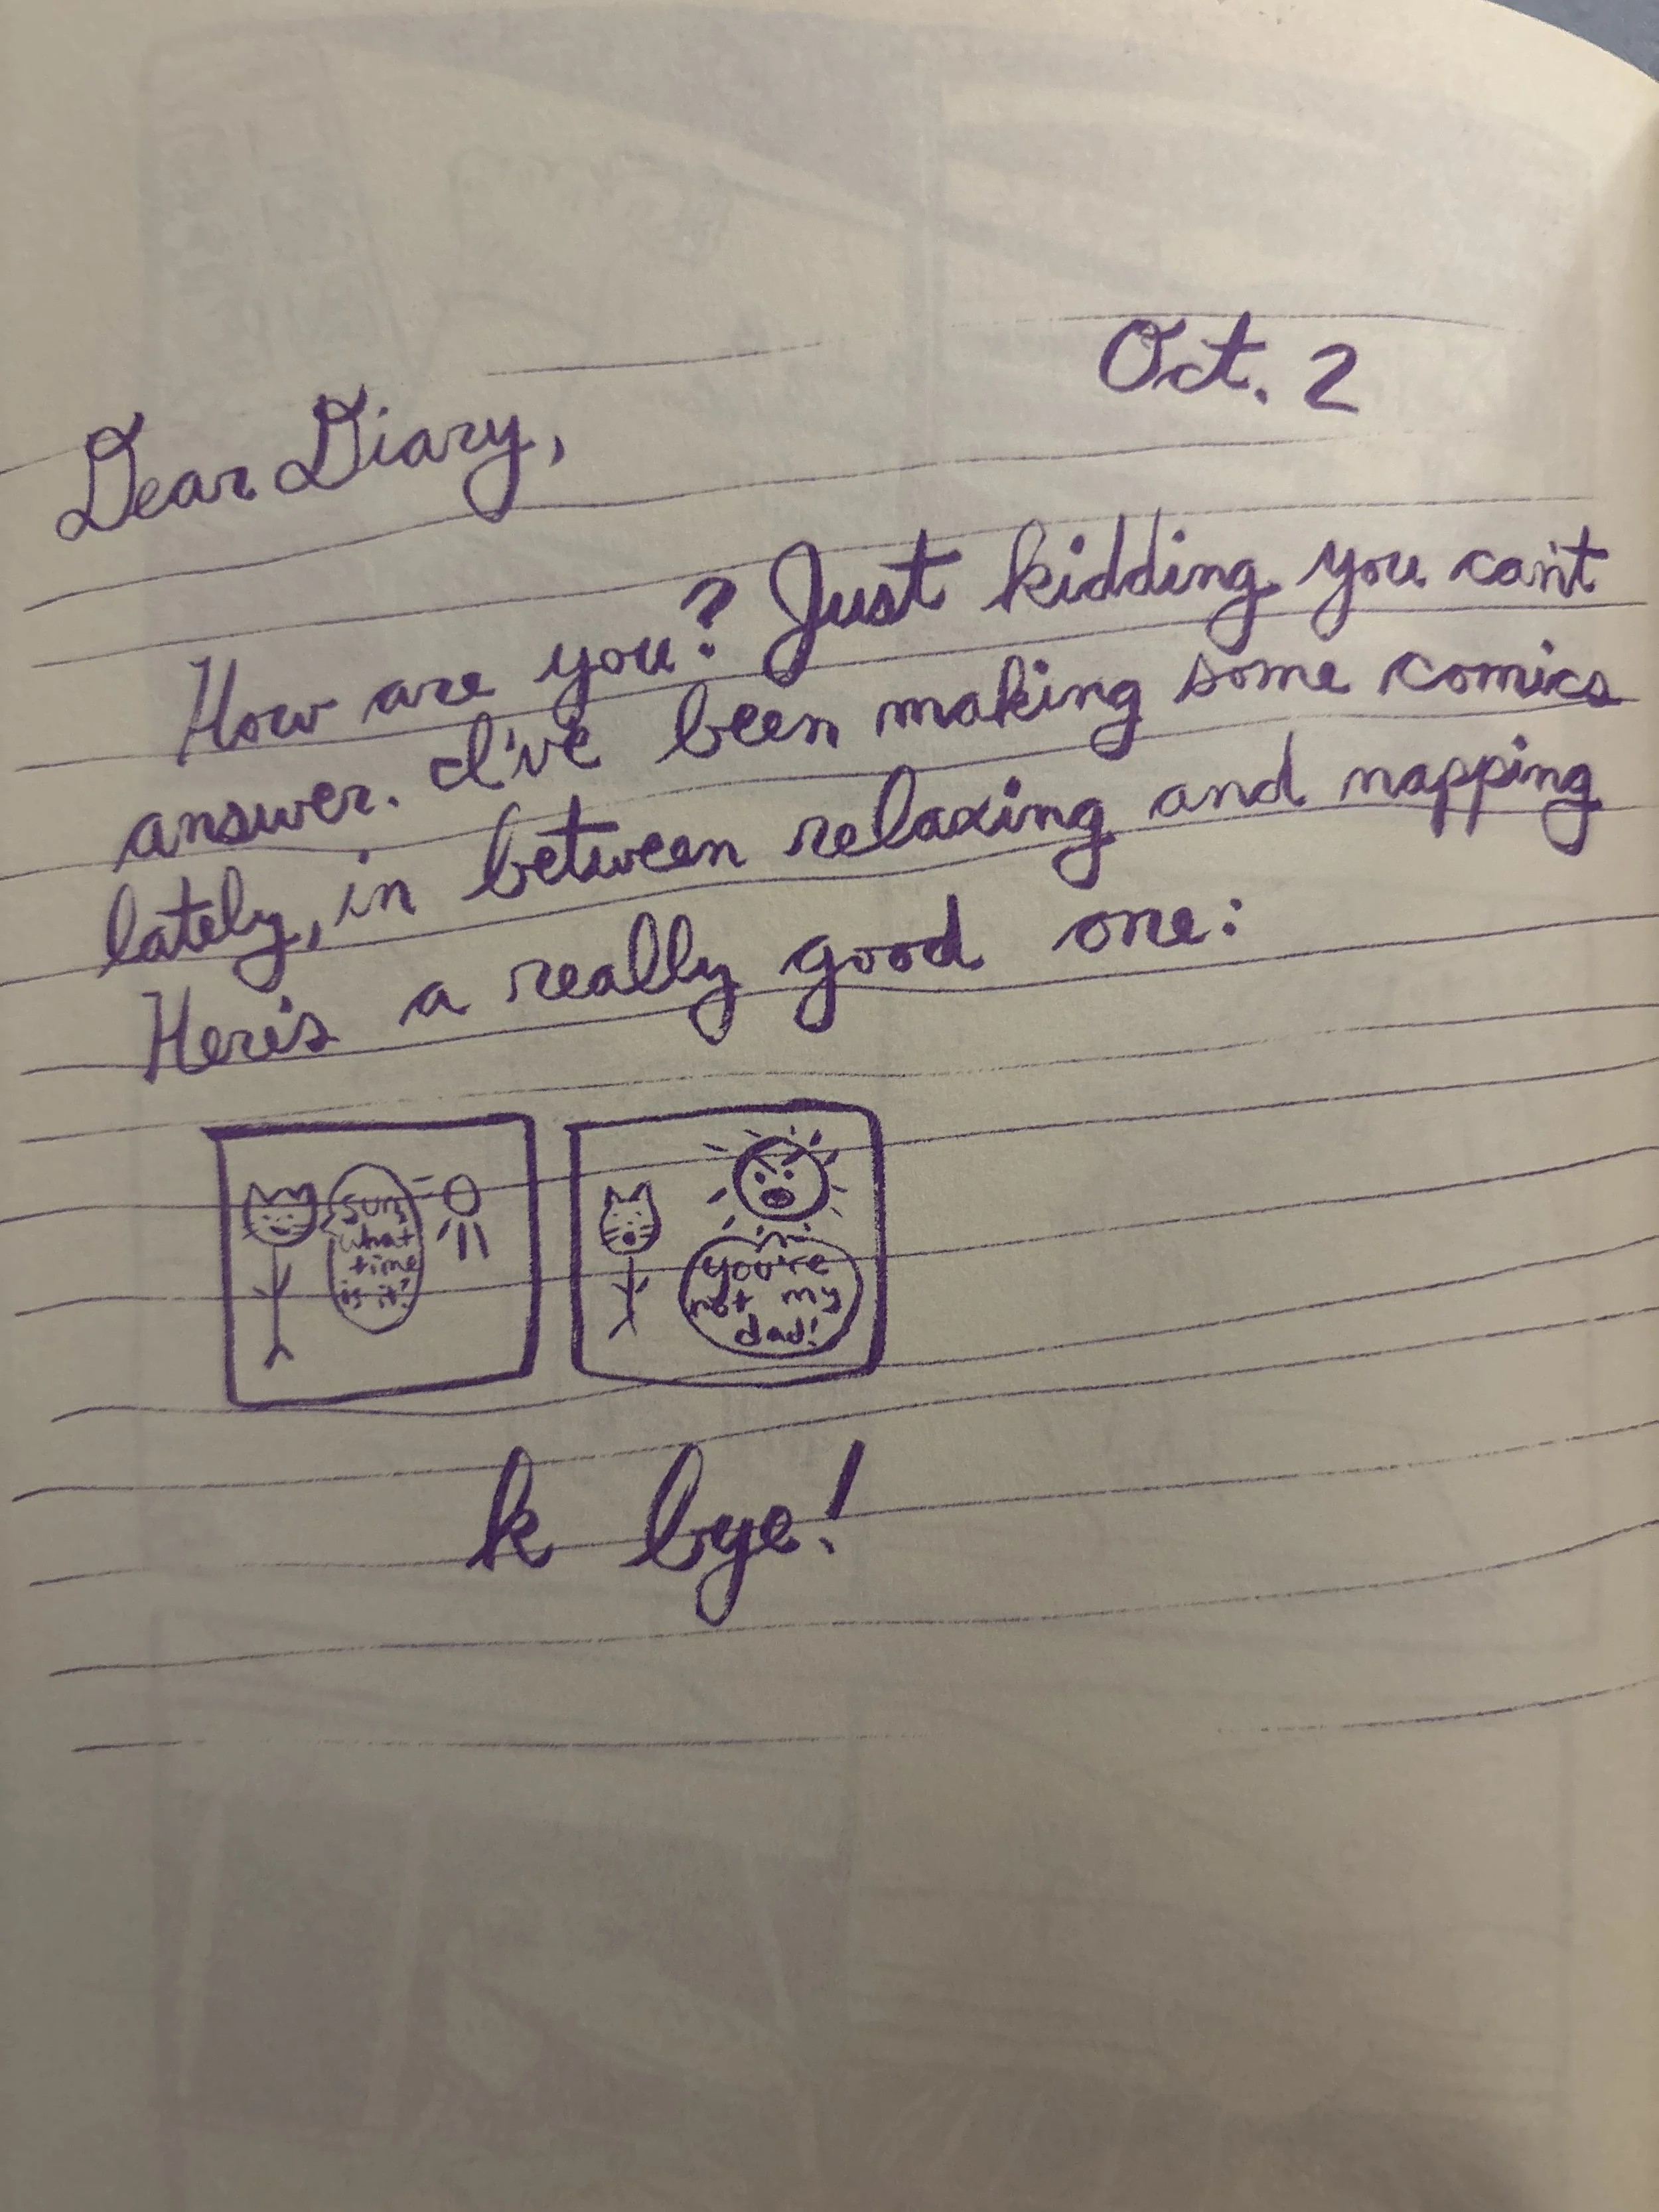 Oct. 2
Dear Diary,
How are you? Just kidding you can't
answer. I've been making some comics
lately, in between relaxing and napping
Here's a really good one:
Sun,
what
time
is it?
you're
not my
dad!
k bye!